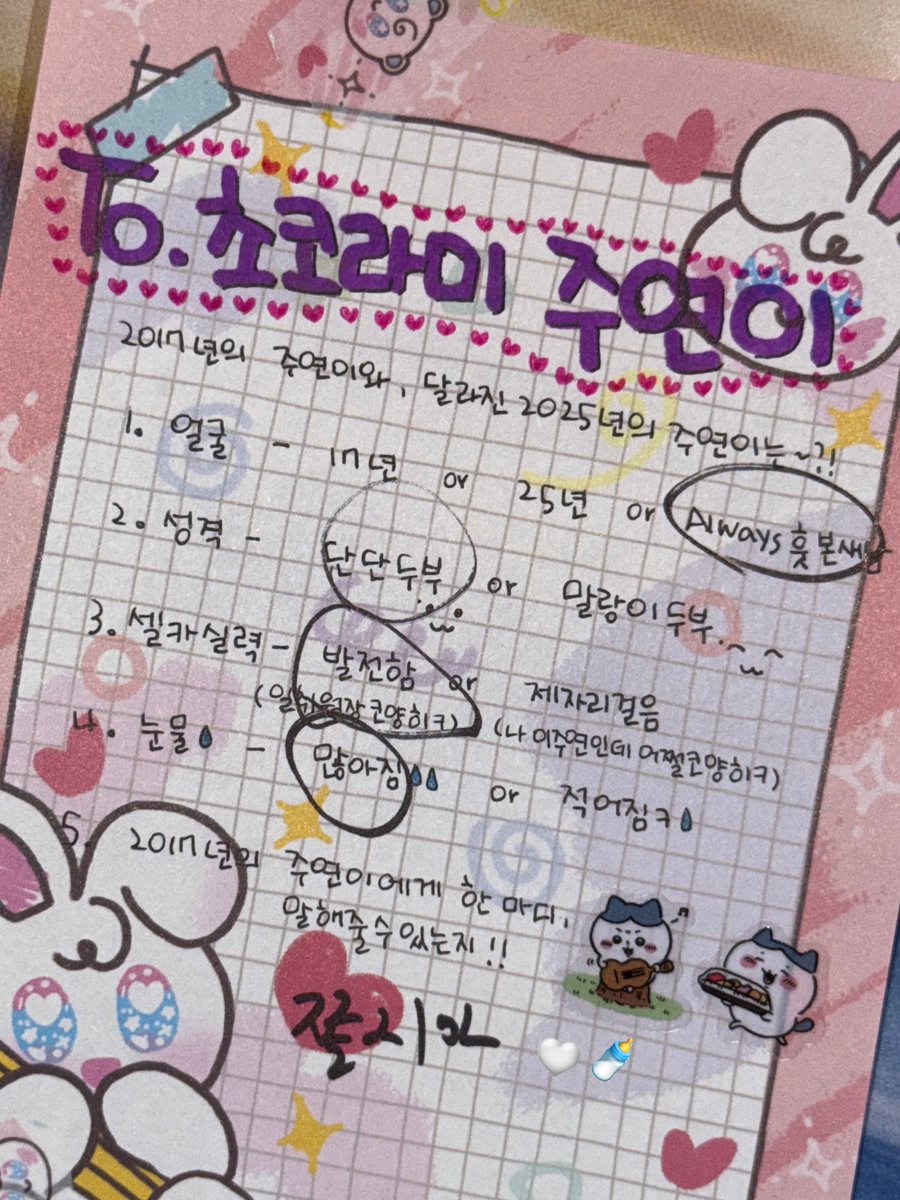 To. 초코라미 주연이
2017년의 주연이와, 달라진 2025년의 주연이는~?!
1. 얼굴 - 17년 or 25년 or Always 훗 본새
2. 성격 - 단단두부 or 말랑이두부
3. 셀카실력 - 발전함 or 제자리걸음
(일취월장코양히ㅋ) (나 이주연인데 어쩔코양히ㅋ)
4. 눈물 - 많아짐 or 적어짐ㅋ
5. 2017년의 주연이에게 한 마디,
말해줄수있는지!!